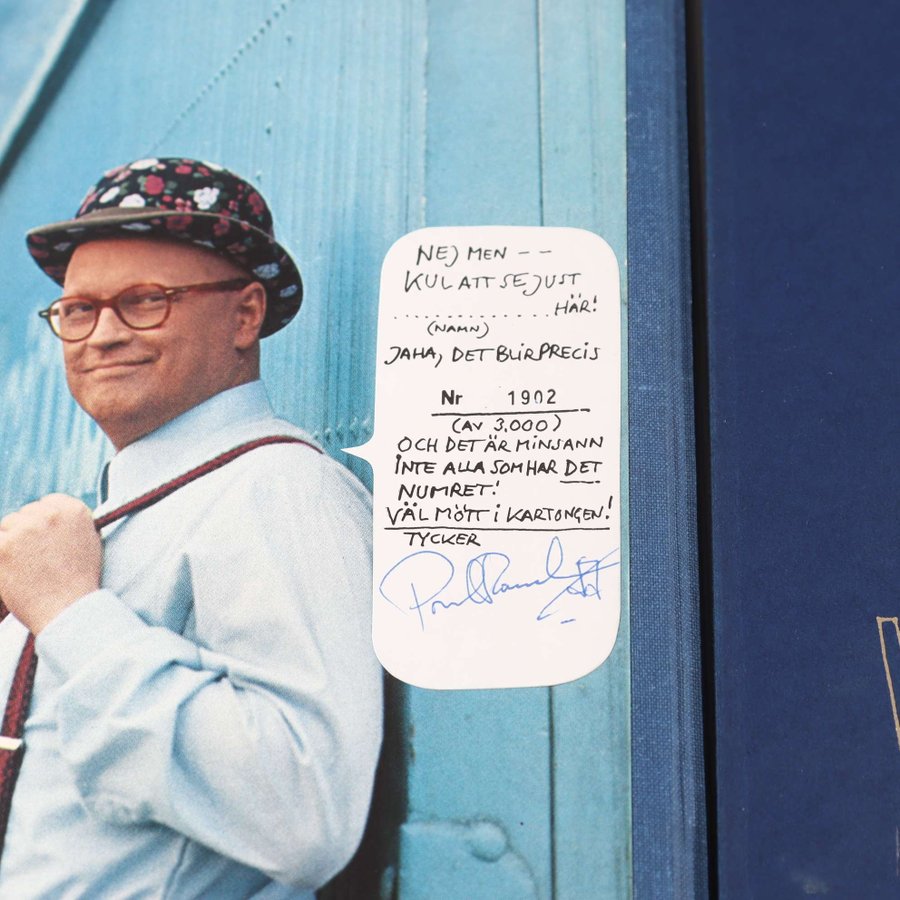 NEJ MEN - -
KUL ATT SE JUST
. . . . . . . . . . . . . . . . HÄR!
(NAMN)
JAHA, DET BLIR PRECIS
Nr 1902
(AV 3.000)
OCH DET ÄR MINSANN
INTE ALLA SOM HAR DET
NUMRET!
VÄL MÖTT i KARTONGEN!
TYCKER